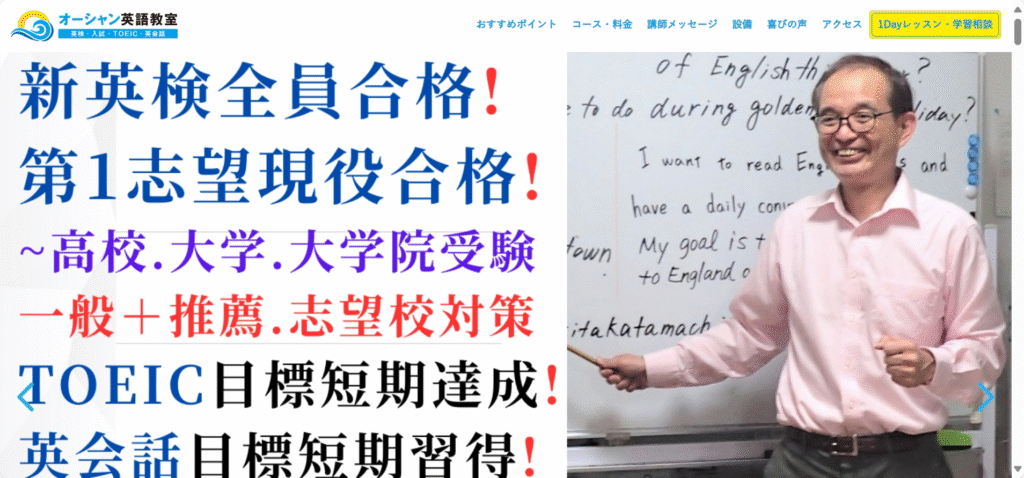 オーシャン英語教室
英検・入試・TOEIC・英会話
おすすめポイント
コース・料金
講師メッセージ
設備
喜びの声
アクセス
1Dayレッスン・学習相談
新英検全員合格!
第1志望現役合格!
~高校.大学.大学院受験
一般＋推薦.志望校対策
TOEIC目標短期達成!
英会話目標短期習得!
of English th ?
to do during golden liday?
I want to read Eng s and
have a daily
town My goal is
to England
itakatamach